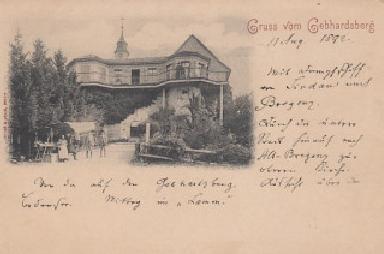 Gruss vom Gebhardsberg
11 Aug. 1892.
Mit Dampfschiff
von Lindau nach
Bregenz.
Durch die untere
Stadt hinauf nach
Alt-Bregenz zu
oberen
Aussicht über d
Von da auf den Gebhardsberg.
Mittag im "Löwen".